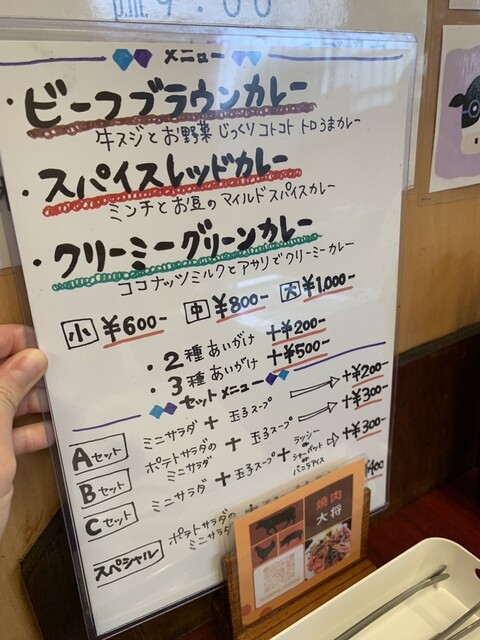 P.M 9:00
メニュー
・ビーフブラウンカレー
牛スジとお野菜 じっくりコトコト トロうまカレー
・スパイスレッドカレー
ミンチとお豆のマイルドスパイスカレー
・クリーミーグリーンカレー
ココナッツミルクとアサリでクリーミーカレー
小 ¥600- 中 ¥800- 大 ¥1.000-
・2種あいがけ +¥200-
・3種あいがけ +¥500-
セットメニュー
Aセット ミニサラダ + 玉子スープ +¥200-
Bセット ポテトサラダの ミニサラダ + 玉子スープ +¥300-
Cセット ミニサラダ + 玉子スープ + ラッシー or シャーベット or バニラアイス +¥300-
スペシャル ポテトサラダの ミニサラダ ¥400
焼肉
大将